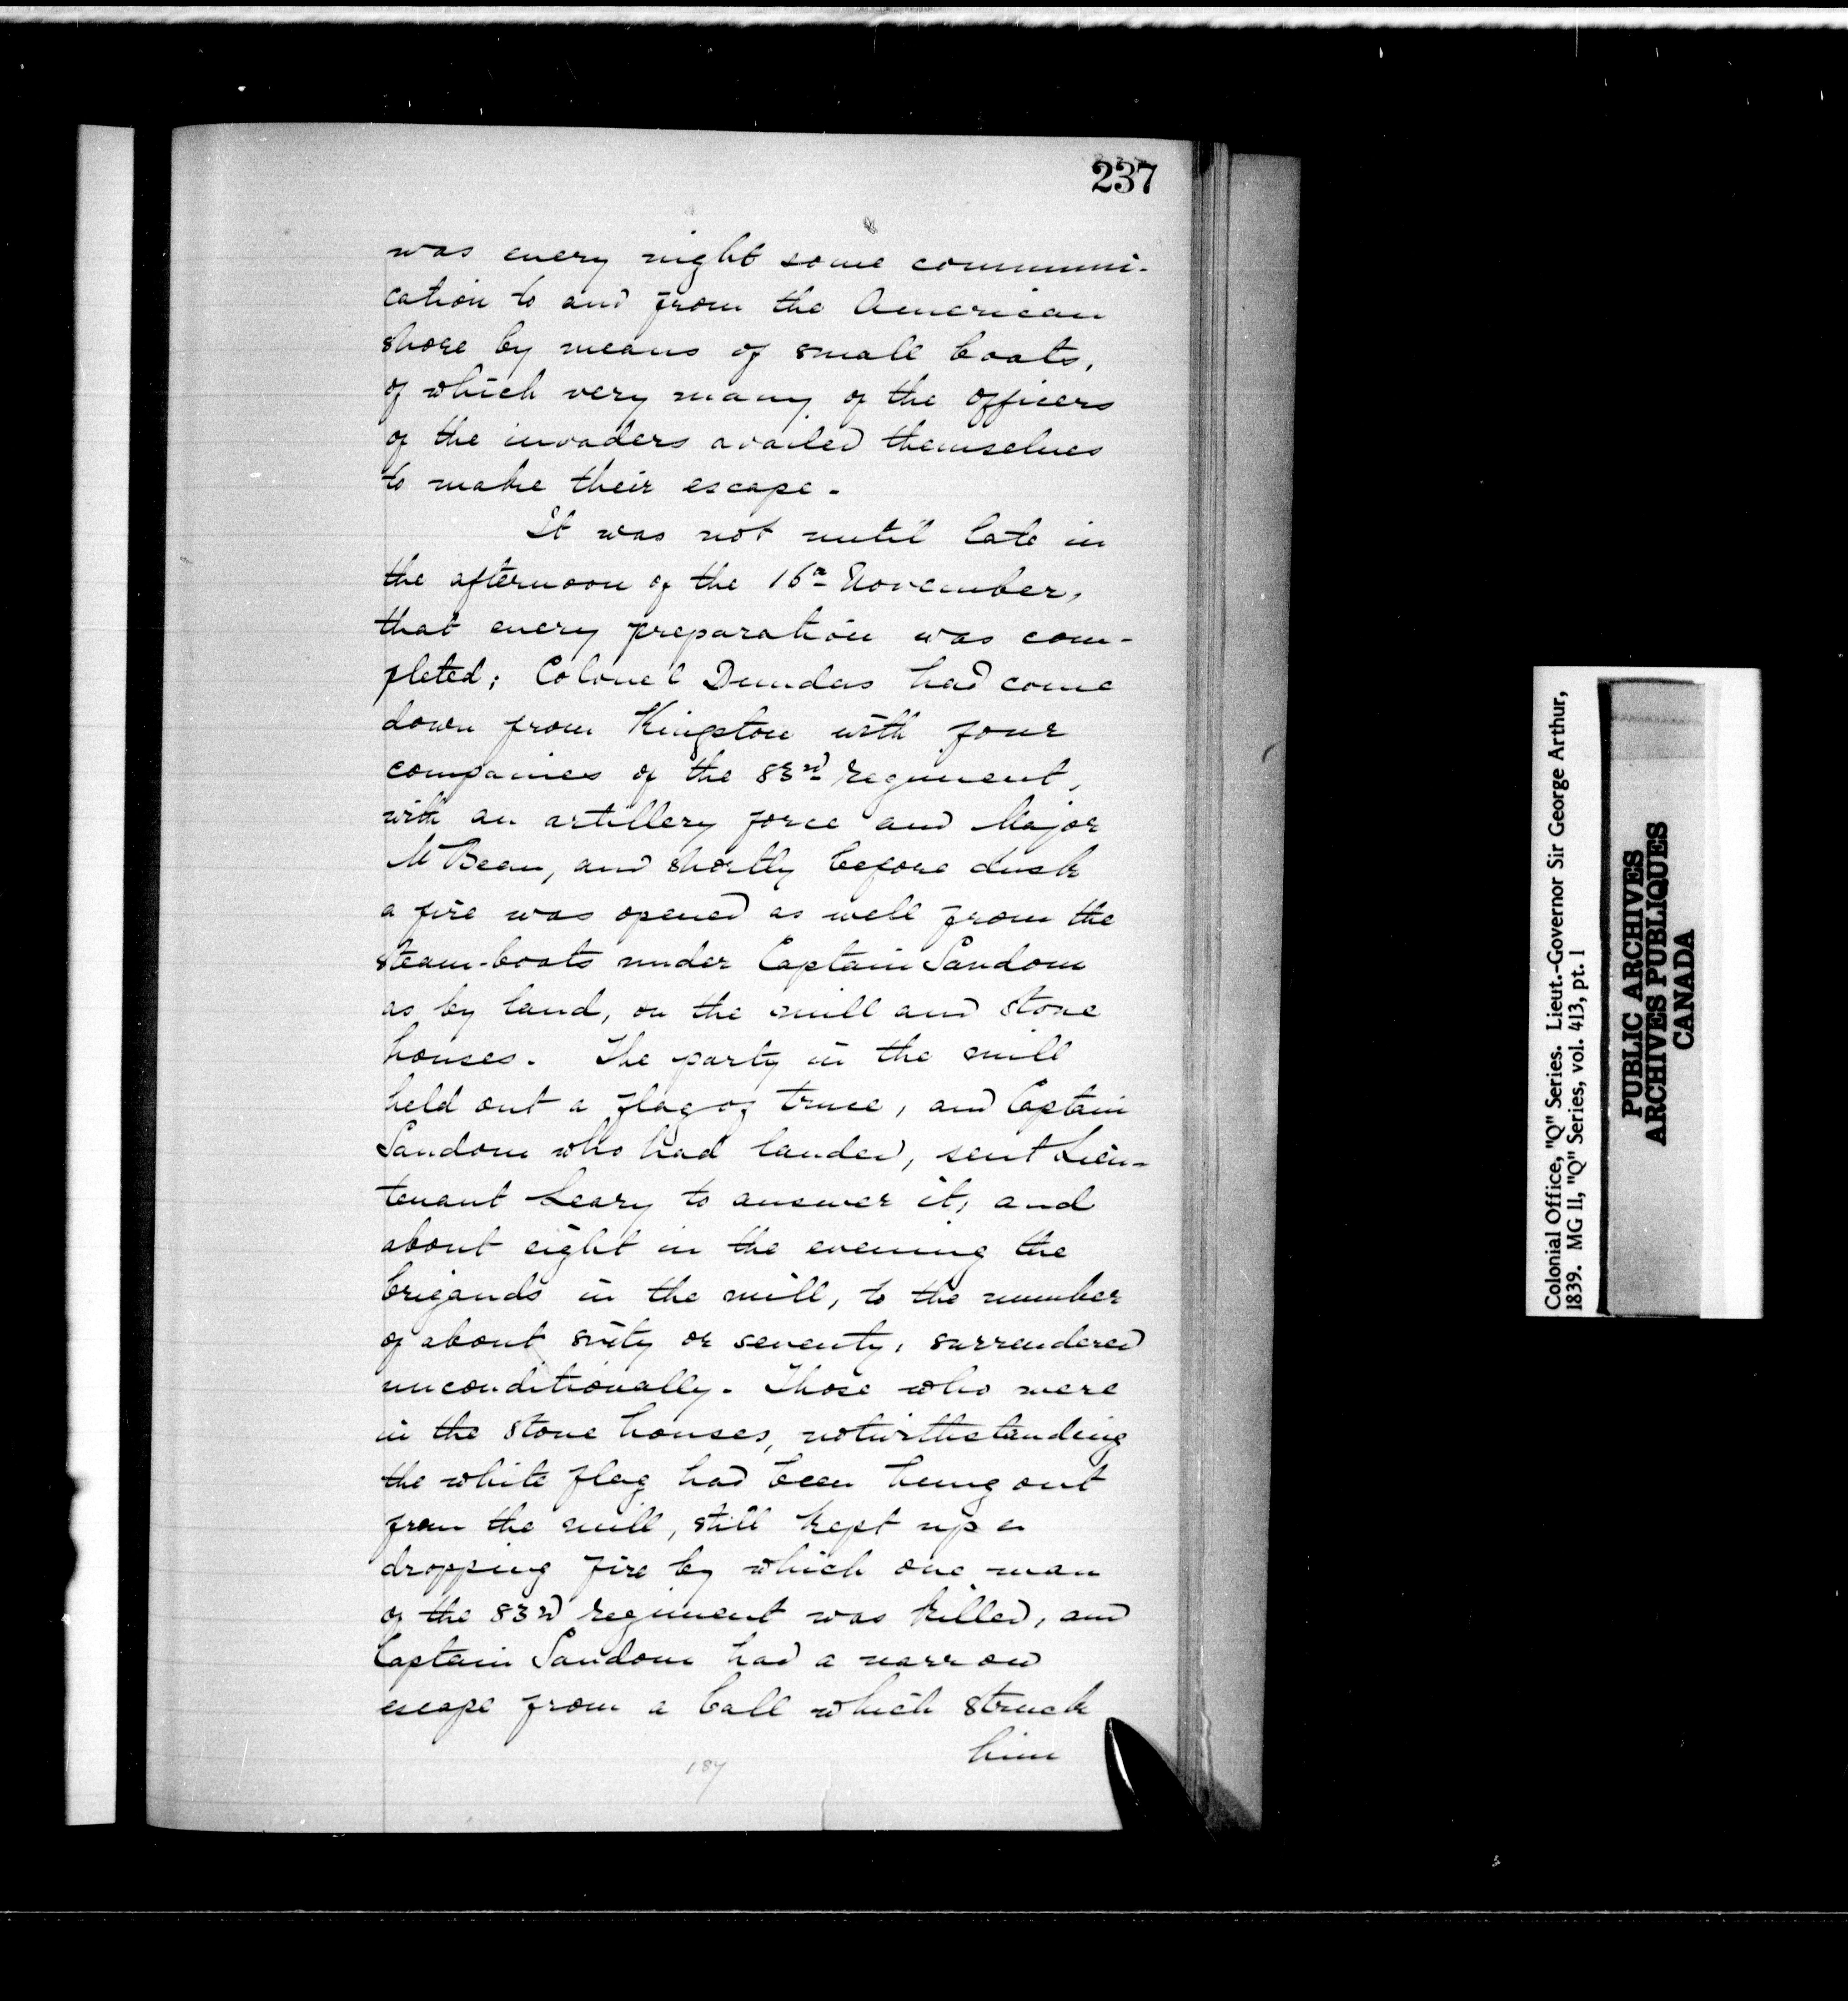 237
was every night some communi-
cation to and from the American
shore by means of small boats,
of which very many of the officers
of the invaders availed themselves
to make their escape.
It was not until late in
the afternoon of the 16th November,
that every preparation was com-
pleted; Colonel Dundas had come
down from Kingston with four
companies of the 83rd regiment,
with an artillery force and Major
McBean, and shortly before dusk
a fire was opened as well from the
steam-boats under Captain Sandom
as by land, on the mill and stone
houses. The party in the mill
held out a flag of truce, and Captain
Sandom who had landed, sent Lieu-
tenant Leary to answer it, and
about eight in the evening the
brigands in the mill, to the number
of about sixty or seventy, surrendered
unconditionally. Those who were
in the stone houses, notwithstanding
the white flag had been hung out
from the mill, still kept up a
dropping fire by which one man
of the 83rd regiment was killed, and
Captain Sandom had a narrow
escape from a ball which struck
him
187
Colonial Office, "Q" Series. Lieut.-Governor Sir George Arthur,
1839. MG 11, "Q" Series, vol. 413, pt. 1
PUBLIC ARCHIVES
ARCHIVES PUBLIQUES
CANADA